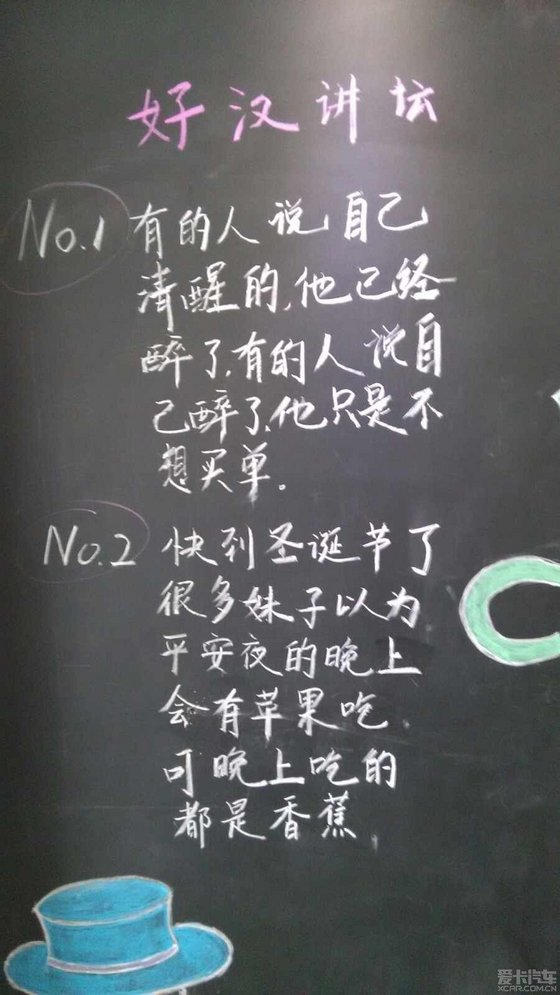 好汉讲坛
No.1 有的人说自己
清醒的,他已经
醉了,有的人说自
己醉了,他只是不
想买单.
No.2 快到圣诞节了
很多妹子以为
平安夜的晚上
会有苹果吃.
可晚上吃的
都是香蕉,
爱卡汽车
XCAR.COM.CN